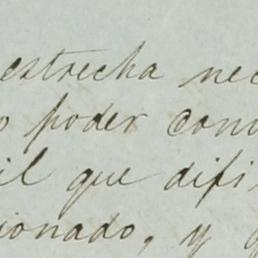 estrecha nec
o poder com
il que difi
ionado, y q